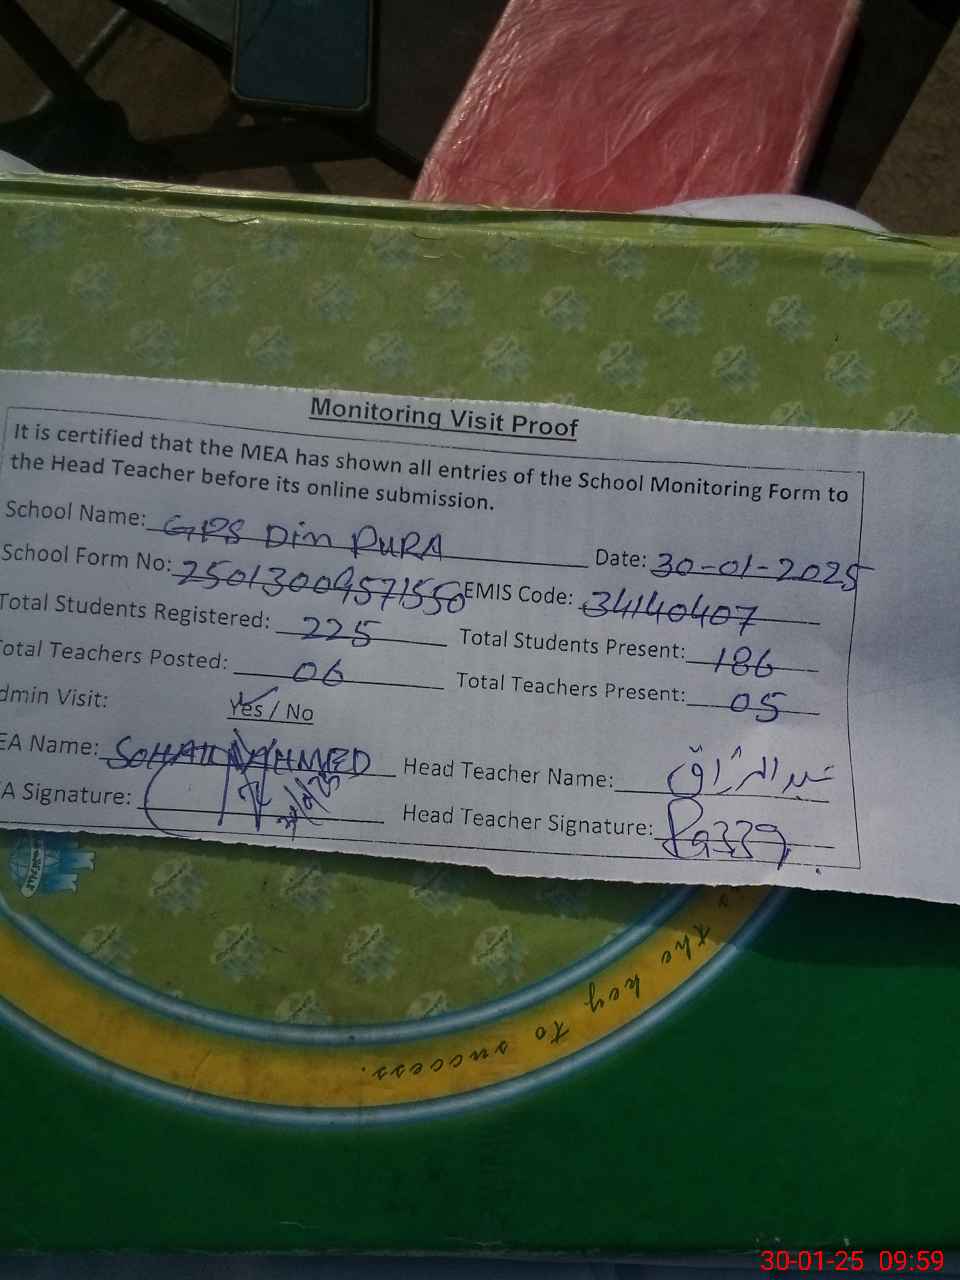 Monitoring Visit Proof
It is certified that the MEA has shown all entries of the School Monitoring Form to
the Head Teacher before its online submission.
School Name: GPS Din PURA Date: 30-01-2025
School Form No: 25013009571550 EMIS Code: 34140407
Total Students Registered: 225 Total Students Present: 186
otal Teachers Posted: 06 Total Teachers Present: 05
dmin Visit: Yes / No
EA Name: SOHAIL AHMED Head Teacher Name: عبدالرزاق
A Signature: Head Teacher Signature:
the key to success.
30-01-25 09:59